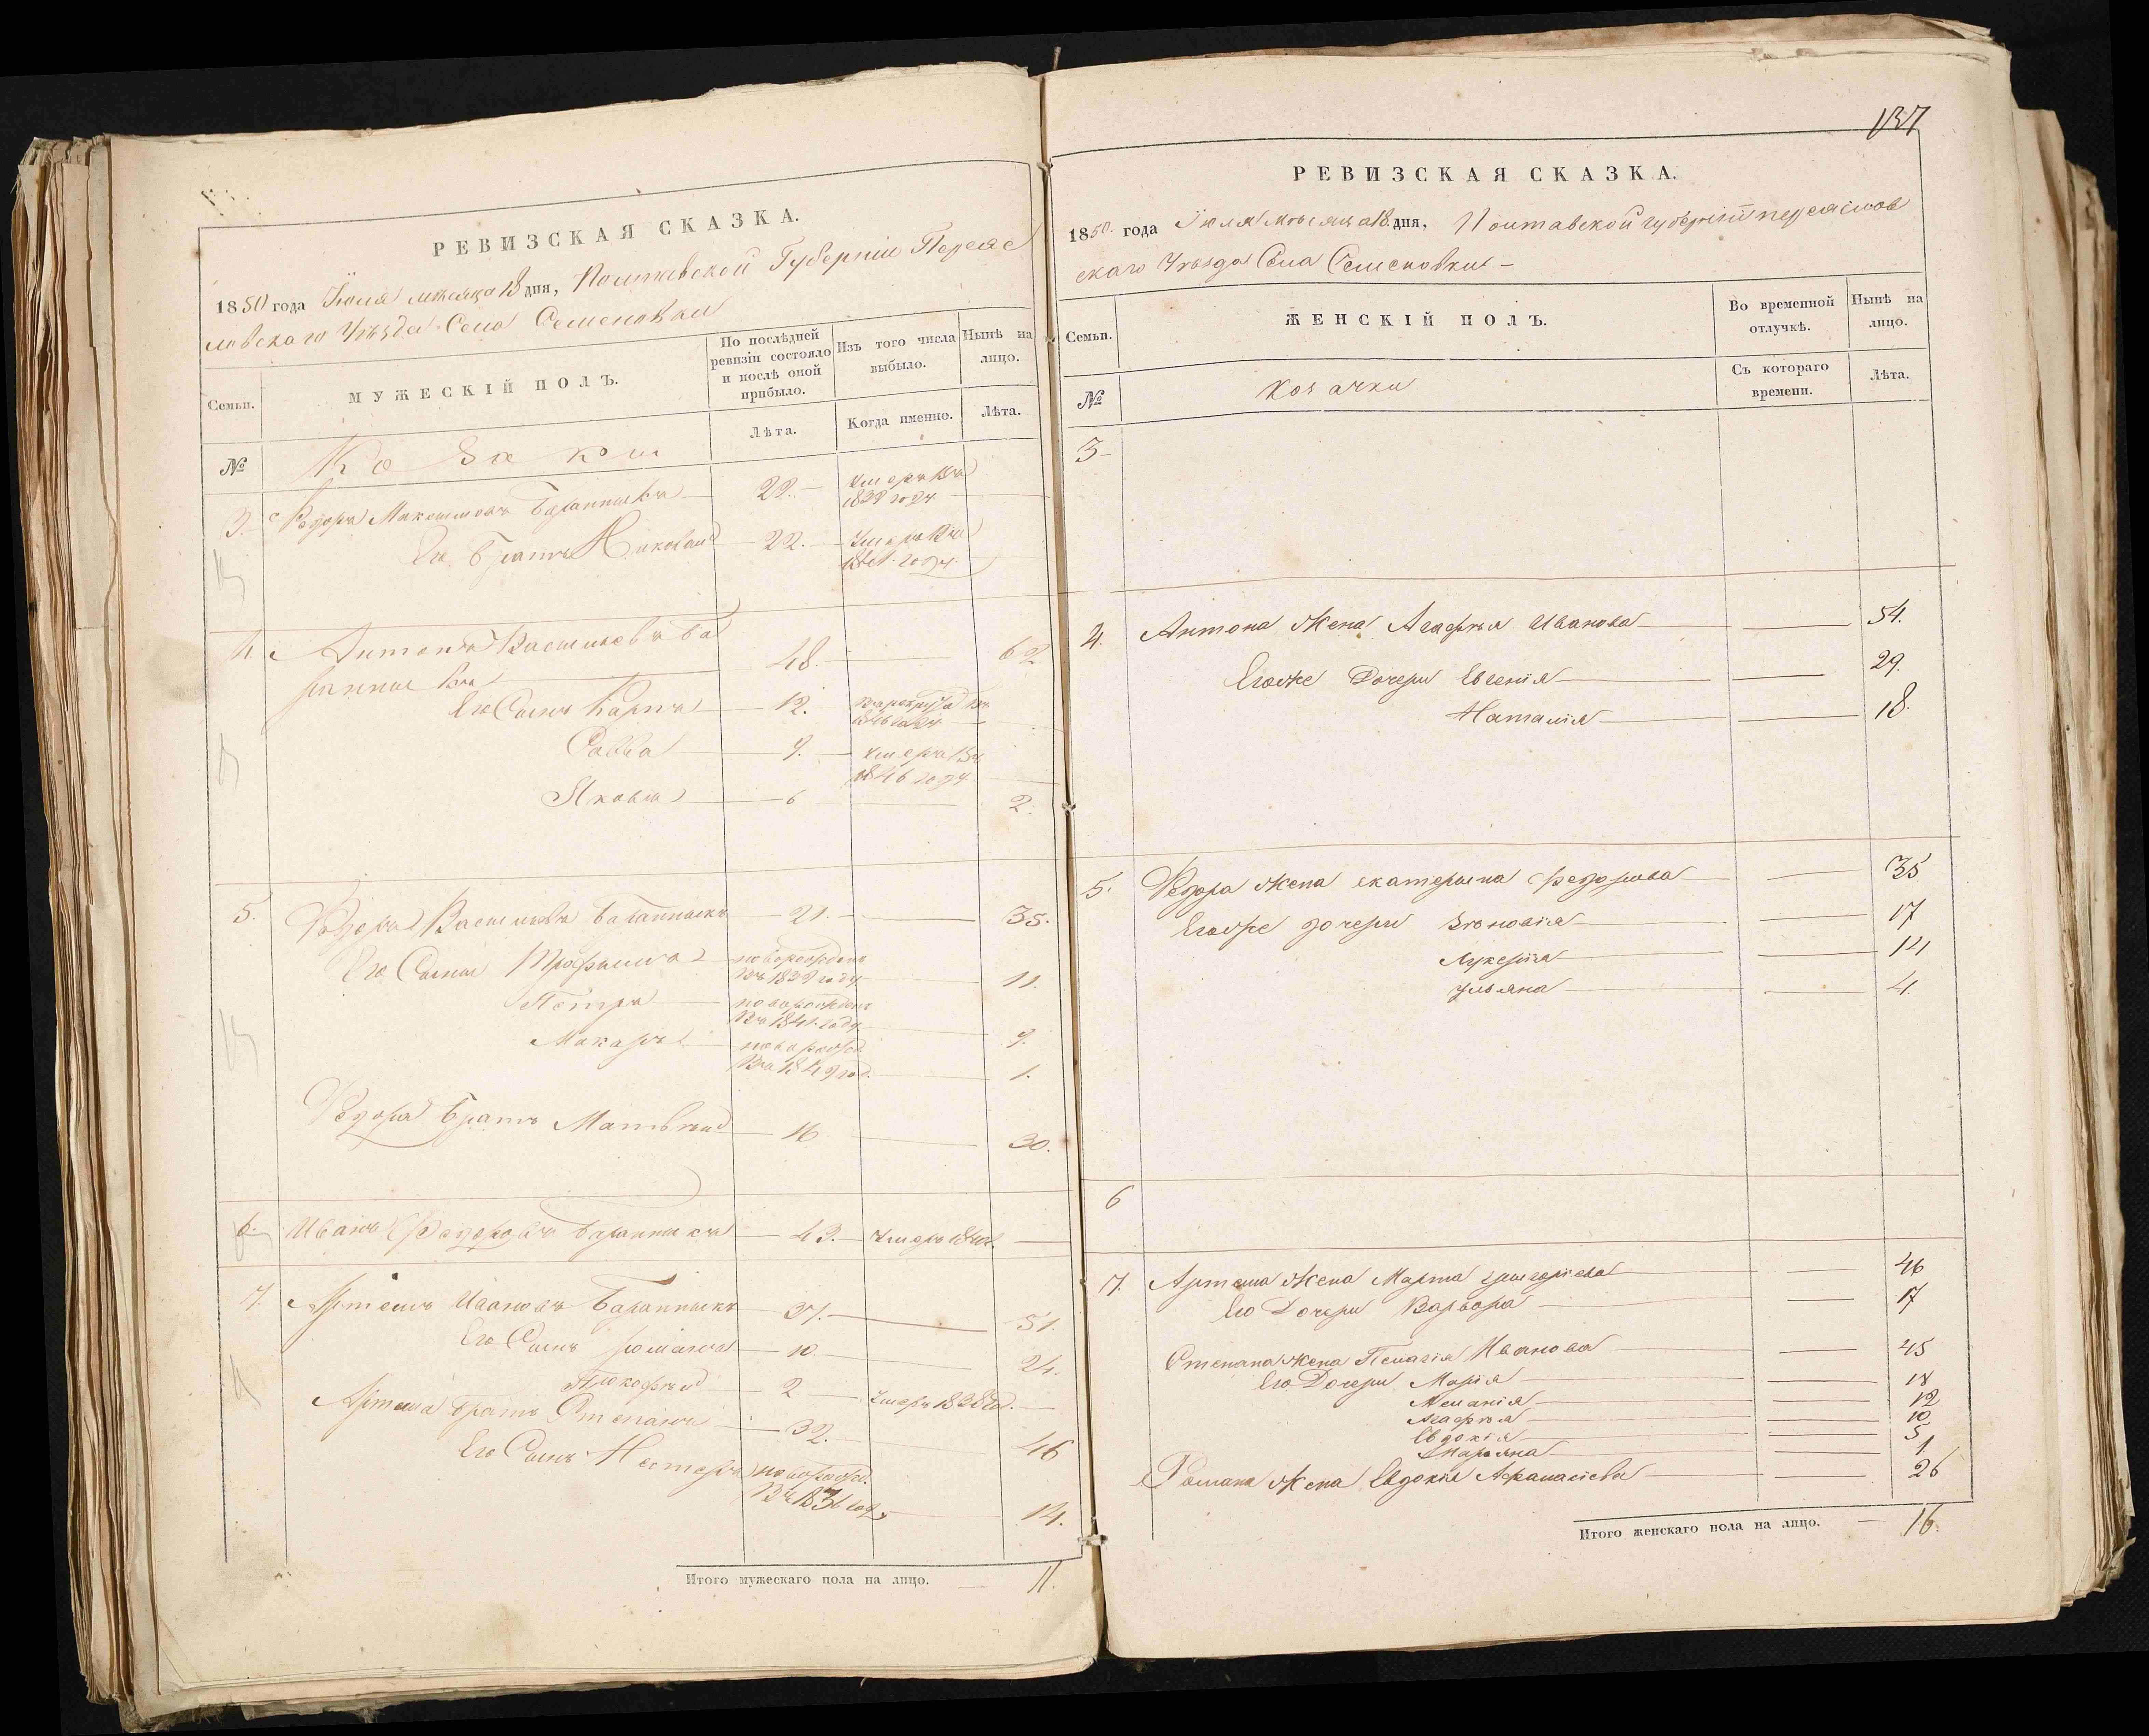 РЕВИЗСКАЯ СКАЗКА.
1850 года Іюля мѣсяца 18 дня, Полтавской Губерніи Переяс
ловскаго Уѣзда Села Семеновки
Семьи.
МУЖЕСКІЙ ПОЛЪ.
По послѣдней ревизіи состояло и послѣ оной прибыло.
Изъ того числа выбыло.
Нынѣ на лицо.
№
Козаки
Лѣта.
Когда именно.
Лѣта.
3. Федоръ Максимовъ 22.
Его Братъ Николай 22.
4. Антонъ Васильевъ Ба 48. 62
Его Сынъ Карпъ 12. 1846 году
Савва 9. умеръ въ 1846 году
Яковъ 6 2
5. Федоръ Васильевъ 21. 35.
Его Сыны Трофимъ новорожденъ въ 1839 году 11.
Петръ новорожден въ 1841 году 9.
Макаръ новорожд. въ 1849 год. 1.
Федора Братъ Матвѣй 16 30.
6. Иванъ Федоровъ 43. умеръ
7. Артемъ Ивановъ 37. 51.
Его Сынъ Романъ 10. 24.
Прокофій 2. умеръ 1838 год.
Артема Братъ Степанъ 32. 46
Его Сынъ Нестеръ новорожд. въ 1836 году 14.
Итого мужескаго пола на лицо. 11.
137
РЕВИЗСКАЯ СКАЗКА.
1850 года Іюля мѣсяца 18 дня, Полтавской губерніи переяслов
скаго Уѣзда Села Семеновки
Семьи.
ЖЕНСКІЙ ПОЛЪ.
Во временной отлучкѣ.
Нынѣ на лицо.
№
козачки
Съ котораго времени.
Лѣта.
3
4. Антона Жена Агафія Иванова 54.
Егоже Дочери Евгенія 29.
Наталія 18.
5. Федора Жена екатерина Федорова 35
Егоже дочери Зѣновія 17
Лукерія 14
Ульяна 4.
6
7. Артема Жена Марта григоріева 46
Его Дочери Варвара 17
Степана Жена Пелагія Иванова 45
Его Дочери Марія 18
Меланія 12
Агафія 10
Евдокія 5
Маріяна 1
Романа Жена Евдокія Афанасіева 26
Итого женскаго пола на лицо. 16.